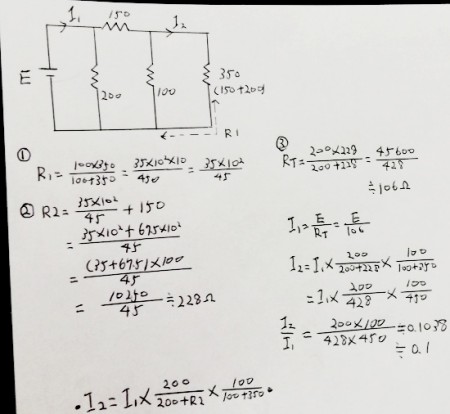 I₁ 150 I₂
E 200 100 350
(150+200)
R1
①
R₁ = 100×350/100+350 = 35×10²×10/450 = 35×10²/45
② R2 = 35×10²/45 + 150
= 35×10²+67.5×10²/45
= (35+67.5)×100/45
= 10250/45 ≒ 228Ω
③
R_T = 200×228/200+228 = 45600/428
≒ 106Ω
I₁ = E/R_T = E/106
I₂ = I₁ × 200/200+228 × 100/100+350
= I₁ × 200/428 × 100/450
I₂/I₁ = 200×100/428×450 ≒ 0.1038
≒ 0.1
・I₂ = I₁ × 200/200+R2 × 100/100+350・